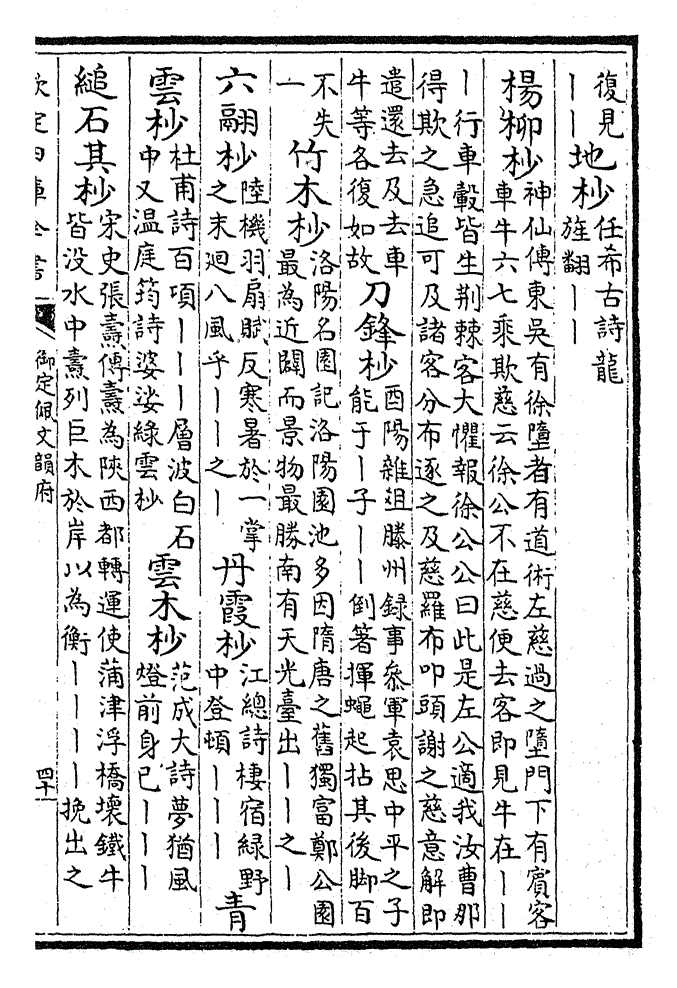 復見
｜｜
地杪
任希古詩龍
旌翻｜｜
楊柳杪
神仙傳東吳有徐墮者有道術左慈過之墮門下有賓客
車牛六七乘欺慈云徐公不在慈便去客即見牛在｜｜
｜行車轂皆生荆棘客大懼報徐公公曰此是左公適我汝曹那
得欺之急追可及諸客分布逐之及慈羅布叩頭謝之慈意解即
遣還去及去車
牛等各復如故
刀鋒杪
酉陽雜俎滕州録事叅軍袁思中平之子
能于｜子｜｜倒箸揮蠅起拈其後脚百
不失
一
竹木杪
洛陽名園記洛陽園池多因隋唐之舊獨富鄭公園
最為近闢而景物最勝南有天光臺出｜｜之｜
六翮杪
陸機羽扇賦反寒暑於一掌
之末廻八風乎｜｜之｜
丹霞杪
江總詩棲宿緑野
中登頓｜｜｜
青
雲杪
杜甫詩百頃｜｜｜層波白石
中又温庭筠詩婆娑綠雲杪
雲木杪
范成大詩夢猶風
燈前身已｜｜｜
縋石其杪
宋史張燾傳燾為陝西都轉運使蒲津浮橋壞鐵牛
皆没水中燾列巨木於岸以為衡｜｜｜｜挽出之
欽定四庫全書
御定佩文韻府